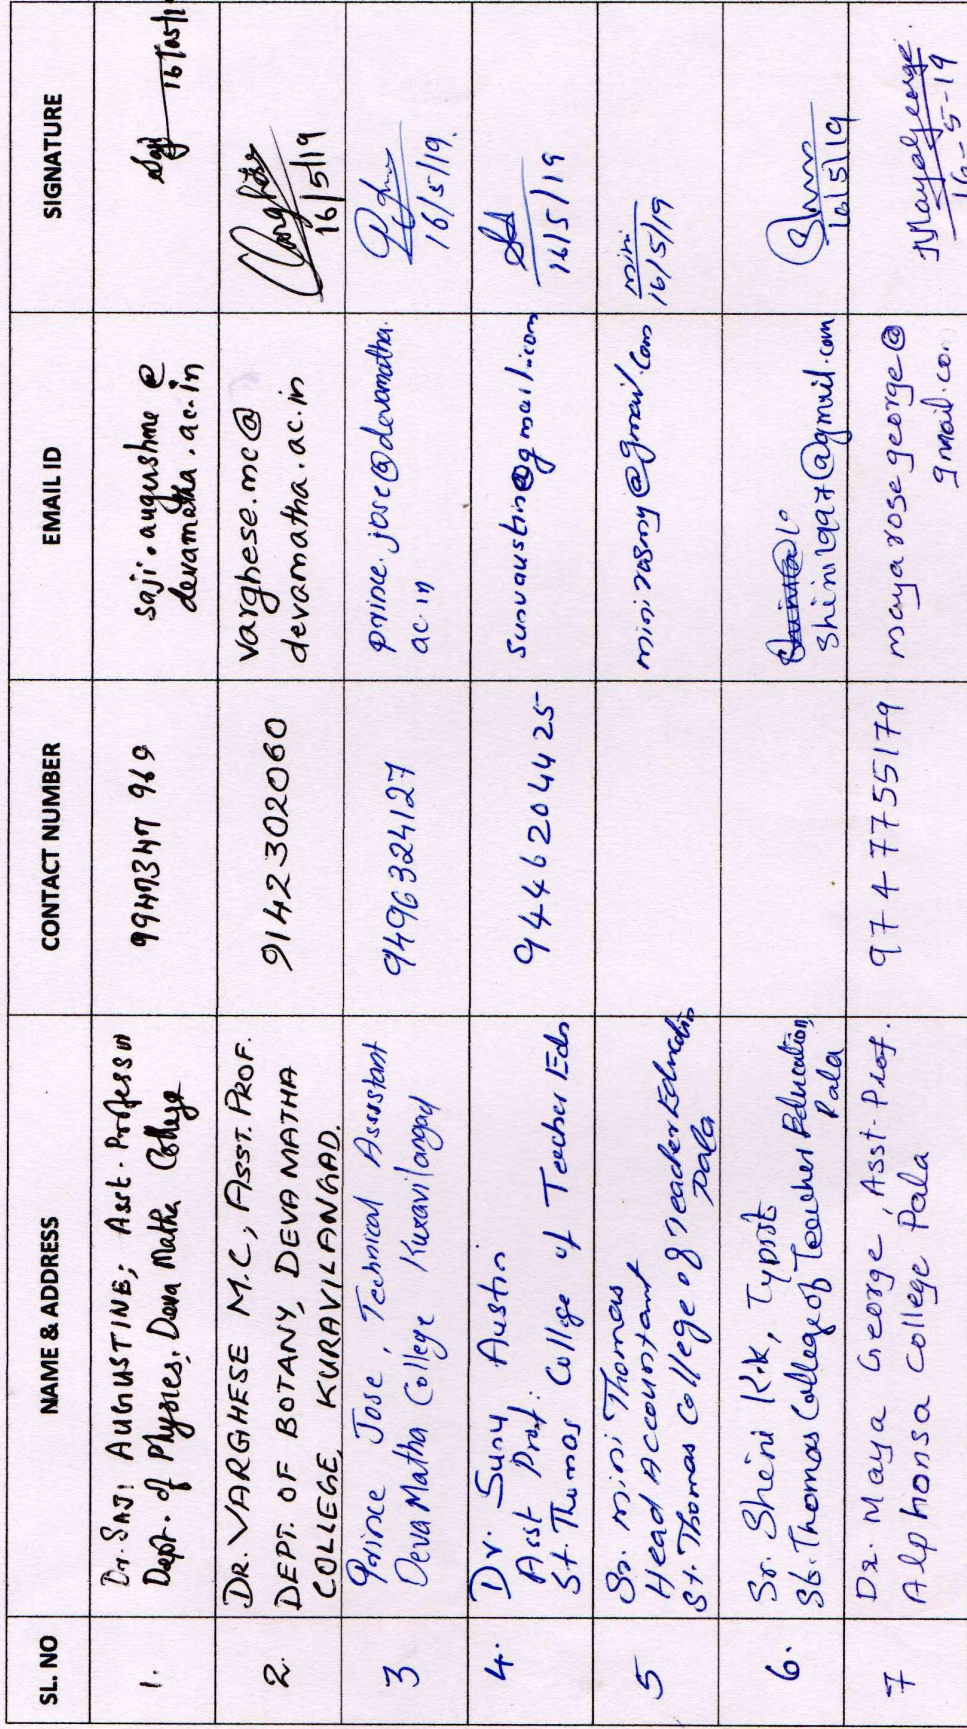 SL. NO NAME & ADDRESS CONTACT NUMBER EMAIL ID SIGNATURE
1. Dr. SAJI AUGUSTINE; Asst. Professor
Dept. of Physics, Deva Matha College
9947347 969
saji.augustine@
devamatha.ac.in
2. DR. VARGHESE M.C, ASST. PROF.
DEPT. OF BOTANY, DEVA MATHA
COLLEGE, KURAVILANGAD.
9142302060
varghese.mc@
devamatha.ac.in
16/5/19
3 Prince Jose, Technical Assistant
Deva Matha College Kuravilangad
9496324127
prince.jose@devamatha.
ac.in
16/5/19.
4. Dr. Suny Austin
Asst Prof:
St. Thomas College of Teacher Edn
9446204425
Sunuaustin@gmail.com
16/5/19
5 Sr. mini Thomas
Head Accountant
St. Thomas College of Teacher Education
Pala
minirosmy@gmail.com
mini
16/5/19
6. Sr. Sheni K.K, Typist
St. Thomas College of Teacher Education,
Pala
Sheni1997@gmail.com
16/5/19
7 Dr. Maya George, Asst. Prof.
Alphonsa College Pala
9747755179
mayarosegeorge@
gmail.com
Mayageorge
16-5-19